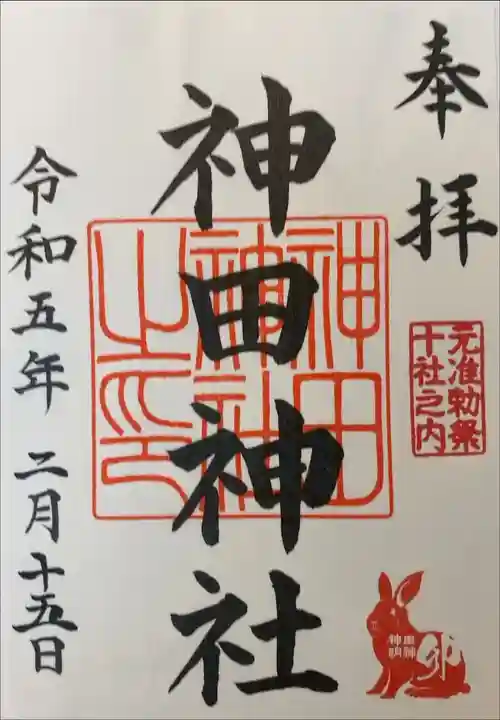 奉拝
元准勅祭
十社之内
神田神社
神田
神社
之印
卯
令和五年 二月十五日